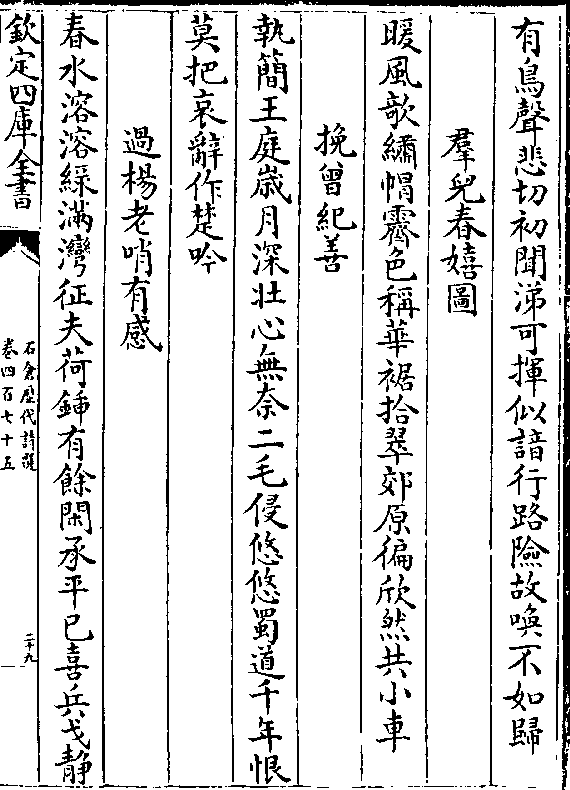 有鳥聲悲切初聞涕可揮似諳行路險故喚不如歸
羣兒春嬉圖
暖風歌繡㡌霽色稱華裾拾翠郊原徧欣然共小車
挽曾紀善
執簡王庭歲月深壯心無奈二毛侵悠悠蜀道千年恨
莫把哀辭作楚吟
過楊老哨有感
春水溶溶綠滿灣征夫荷鍤有餘閑承平已喜兵戈靜
欽定四庫全書
石倉歷代詩選
卷四百七十五
二十九